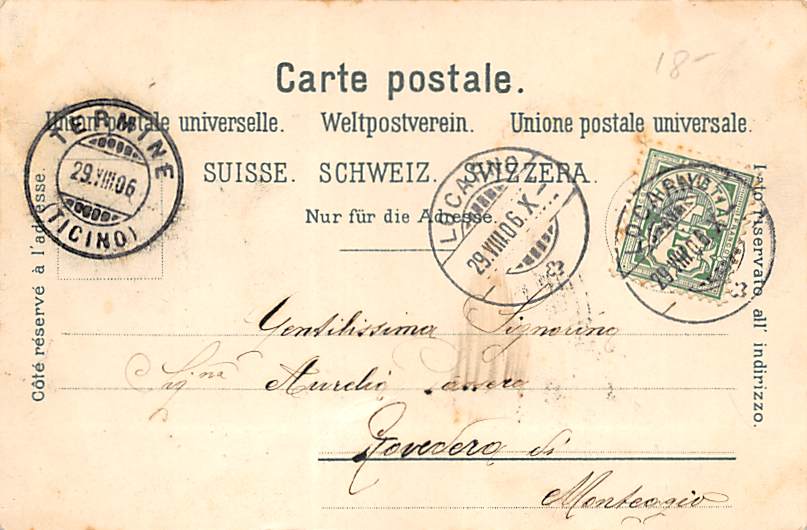 18-
Carte postale.
Union postale universelle. Weltpostverein. Unione postale universale.
SUISSE. SCHWEIZ. SVIZZERA.
Nur für die Adresse.
Côté réservé à l'adresse.
Lato riservato all' indirizzo.
TERMINE
29.VIII.06
(TICINO)
LOCARNO
29.VIII.06.X-
LOCARNO
29.VIII.06.X
Gentilissima Signorina
Sig.na Aurelia
di
Monteggio